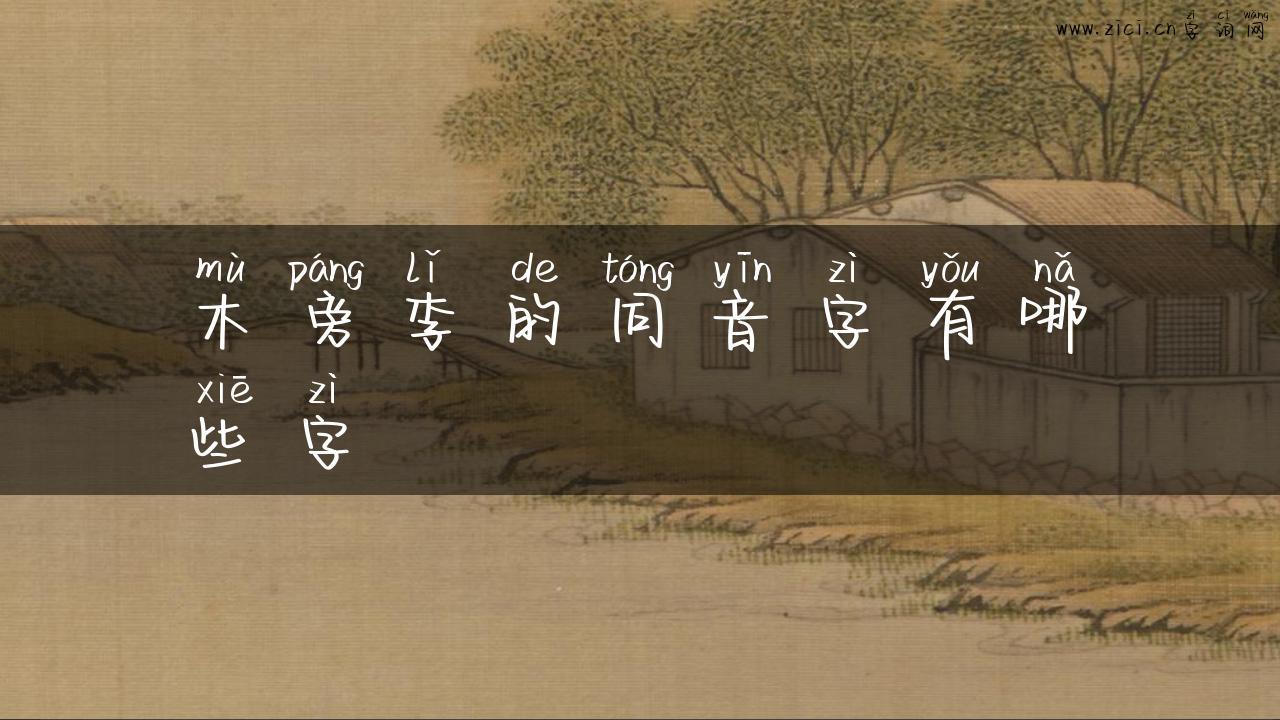 zì cí wǎng
www.zici.cn字词网
mù páng lǐ de tóng yīn zì yǒu nǎ
木旁李的同音字有哪
xiē zì
些字